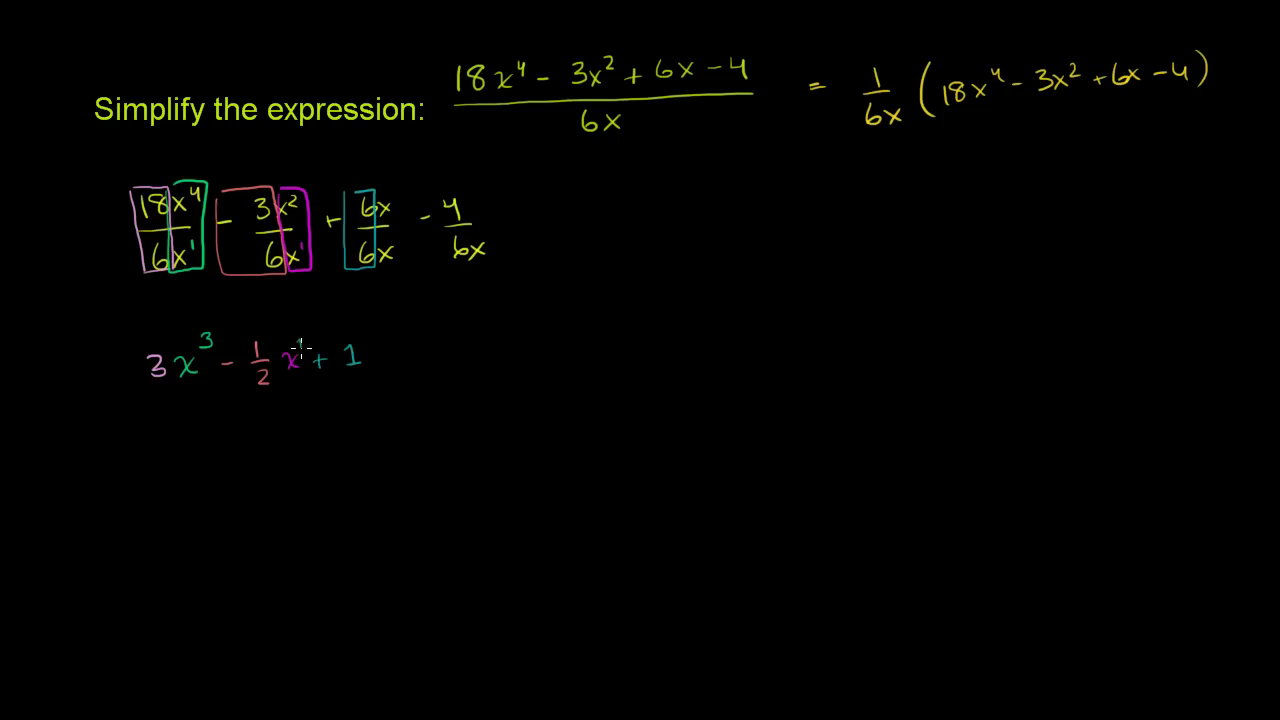 Simplify the expression: \frac{18x^4 - 3x^2 + 6x - 4}{6x} = \frac{1}{6x} (18x^4 - 3x^2 + 6x - 4)
\frac{18x^4}{6x^1} - \frac{3x^2}{6x^1} + \frac{6x}{6x} - \frac{4}{6x}
3x^3 - \frac{1}{2}x^1 + 1